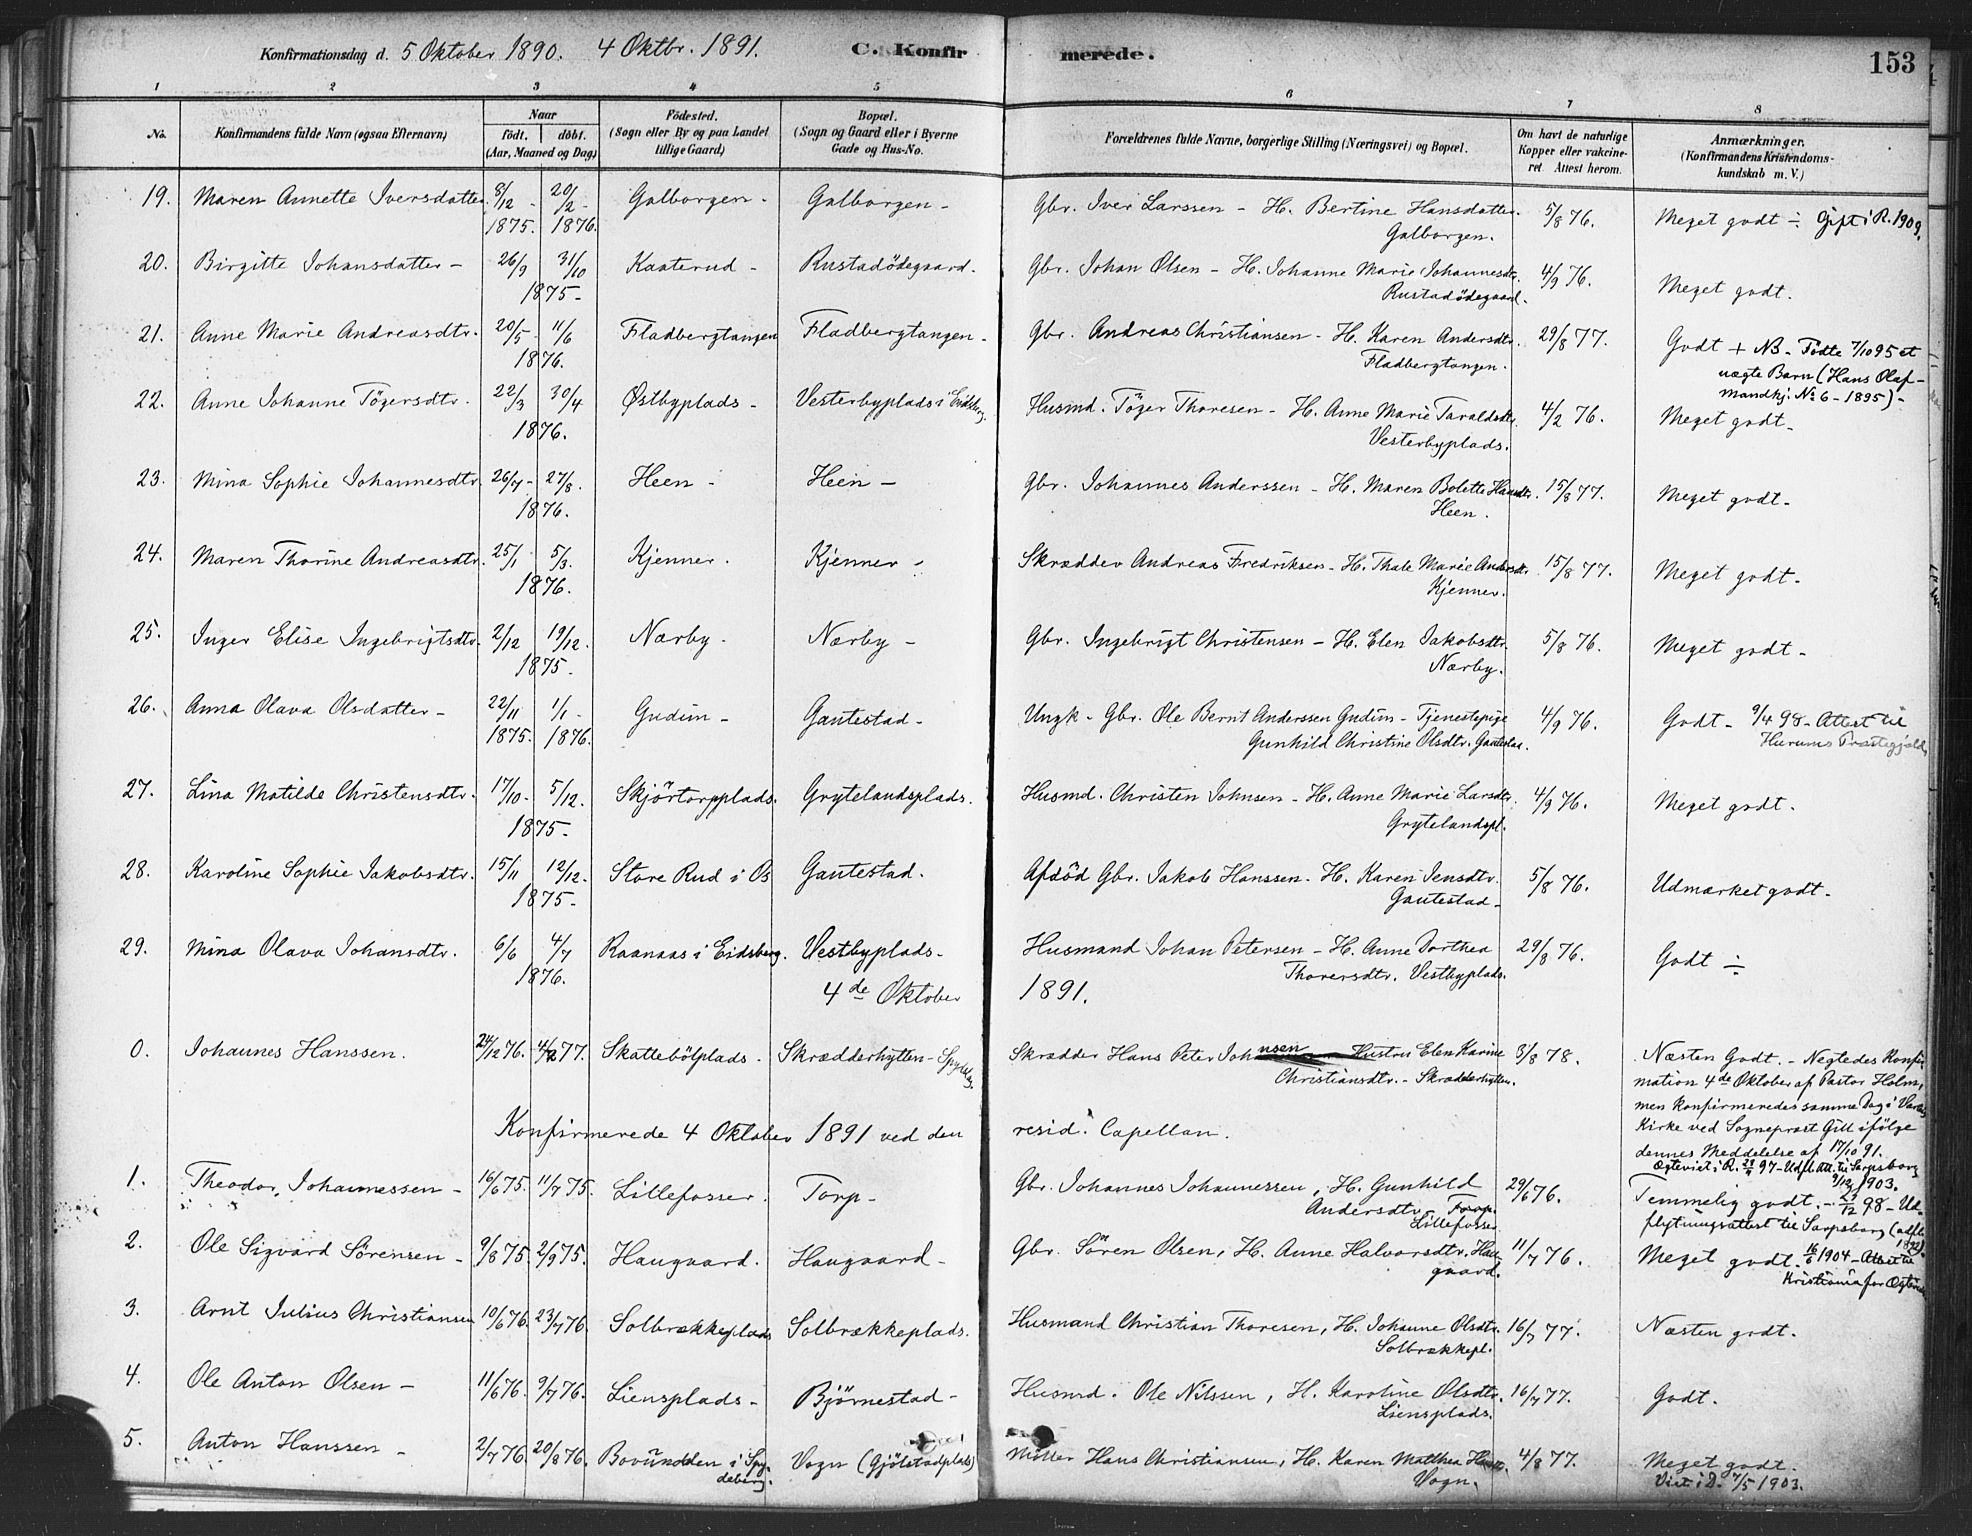 Konfirmationsdag d. 5 Oktober 1890. 4 Oktbr. 1891. C. Konfirmerede. 153
1 2 3 4 5 6 7 8
No. Konfirmandens fulde Navn (ogsaa Efternavn) Naar født. døbt. (Aar, Maaned og Dag) Fødested. (Sogn eller By og paa Landet tillige Gaard) Bopæl. (Sogn og Gaard eller i Byerne Gade og Hus-No. Forældrenes fulde Navne, borgerlige Stilling (Næringsvei) og Bopæl. Om havt de naturlige Kopper eller vakcineret Attest herom. Anmærkninger. (Konfirmandens Kristendomskundskab m. V.)
19. Maren Annette Iversdatter 8/12 - 20/2 - Galborgen - Galborgen - Gbr. Iver Larssen - H. Bertine Hansdatter. 5/8 76. Meget godt ÷ Gift i R. 1909.
1875. 1876. Galborgen.
20. Birgitte Johansdatter - 26/9 31/10 Kaaterud - Rustadödegaard. Gbr. Johan Olsen - H. Johanne Marie Johannesdtr. 4/9 76. Meget godt.
1875 - Rustadödegaard.
21. Anne Marie Andreasdtr. 20/5 - 11/6 Fladbergtangen Fladbergtangen - Gbr. Andreas Christiansen - H. Karen Andersdtr. 29/8 77. Godt + NB - Födte 7/10 95 et
1876. Fladbergtangen. uægte Barn (Hans Olaf -
mandkj. No 6 - 1895) -
22. Anne Johanne Tögersdtr. 22/3 30/4 Østbyplads - Vesterbyplads i Eidsberg. Husmd. Töger Thoresen - H. Anne Marie Taraldsdtr. 4/2 76. Meget godt -
1876. Vesterbyplads.
23. Mina Sophie Johannesdtr. 26/7 - 27/8. Heen - Heen - Gbr. Johannes Anderssen - H. Maren Bolette Hansdtr. 15/8 77. Meget godt -
1876. Heen.
24. Maren Thorine Andreasdtr. 25/1 5/3. Kjenner. Kjenner - Skrædder Andreas Fredriksen - H. Thale Marie Andersdtr. 15/8 77. Meget godt -
1876. Kjenner.
25. Inger Elise Ingebrigtsdtr. 2/12 19/12. Nærby. Nærby - Gbr. Ingebrigt Christensen - H. Elen Jakobsdtr. 5/8 76. Meget godt -
1875. Nærby.
26. Anna Olava Olsdatter - 22/11 1/1 - Gudim - Gautestad - Ungk - Gbr. Ole Bernt Anderssen Gudim - Tjenestepige 4/9 76. Godt - 9/4 98 - Attest til
1875. 1876. Gunhild Christine Olsdtr. Gautestad. Hurums Præstegjeld
27. Lina Matilde Christensdtr. 17/10 - 5/12. Skjörtorpplads. Grytelandsplads. Husmd. Christen Johnsen - H. Anne Marie Larsdtr. 4/9 76. Meget godt.
1875 - Grytelandspl.
28. Karoline Sophie Jakobsdtr. 15/11 12/12. Store Rud i Ås Gautestad. Afdöd Gbr. Jakob Hanssen - H. Karen Jensdtr. 5/8 76. Udmærket godt -
1875 - Gautestad -
29. Mina Olava Johansdtr. 6/6 4/7 Raanaas i Eidsberg. Vestbyplads - Husmand Johan Petersen - H. Anne Dorthea 29/8 76. Godt ÷
1876. Thorersdtr. Vestbyplads.
4de Oktober 1891.
0. Johannes Hanssen. 24/12 76. 4/2 77. Skattebölplads. Skrædderhytten - Skrædder Hans Peter Johnsen Hustru Elen Karine 3/8 78. Næsten Godt. - Negtedes Konfir
Christiansdtr. - Skrædderhytten. mation 4de Oktober af Pastor Holm,
men konfirmeredes samme Dag i
Konfirmerede 4 Oktober 1891 ved den resid. Capellan. Kirke ved Sognepræst Gill ifölge
dennes Meddelelse af 17/10 91.
Ægteviet i R. 97 - Udfl. att. til Sarpsborg
1903.
1. Theodor, Johannessen - 16/6 75. 11/7 75. Lillefosser. Torp - Gbr. Johannes Johannessen, H. Gunhild 29/6 76. Temmelig godt. - 98 - Ud-
Andersdtr. Torp. Lillefosser flytningsattest til Sarpsborg
2. Ole Sigvard Sörensen - 9/8 75. 2/9 75. Haugaard. Haugaard - Gbr. Sören Olsen, H. Anne Halvorsdtr. Hau 11/7 76. Meget godt. 16/6 1904 - Attest til
gaard. Kristiania for Ægteskab
3. Arnt Julius Christiansen 10/6 76. 23/7 76. Solbrækkeplads Solbrækkeplads. Husmand Christian Thoresen, H. Johanne Olsdtr. 16/7 77. Næsten godt.
Solbrækkepl.
4. Ole Anton Olsen - 11/6 76. 9/7 76. Liensplads - Björnestad - Husmd. Ole Nilssen, H. Karoline Olsdtr. 16/7 77. Godt.
Liensplads.
5. Anton Hanssen - 2/7 76. 20/8 76. Bovündden i Spydeberg. Vogn (Gjölstadplads) Möller Hans Christiansen, H. Karen Matthea 4/8 77. Meget godt.
Vogn. Viet i D. 7/5 1903.